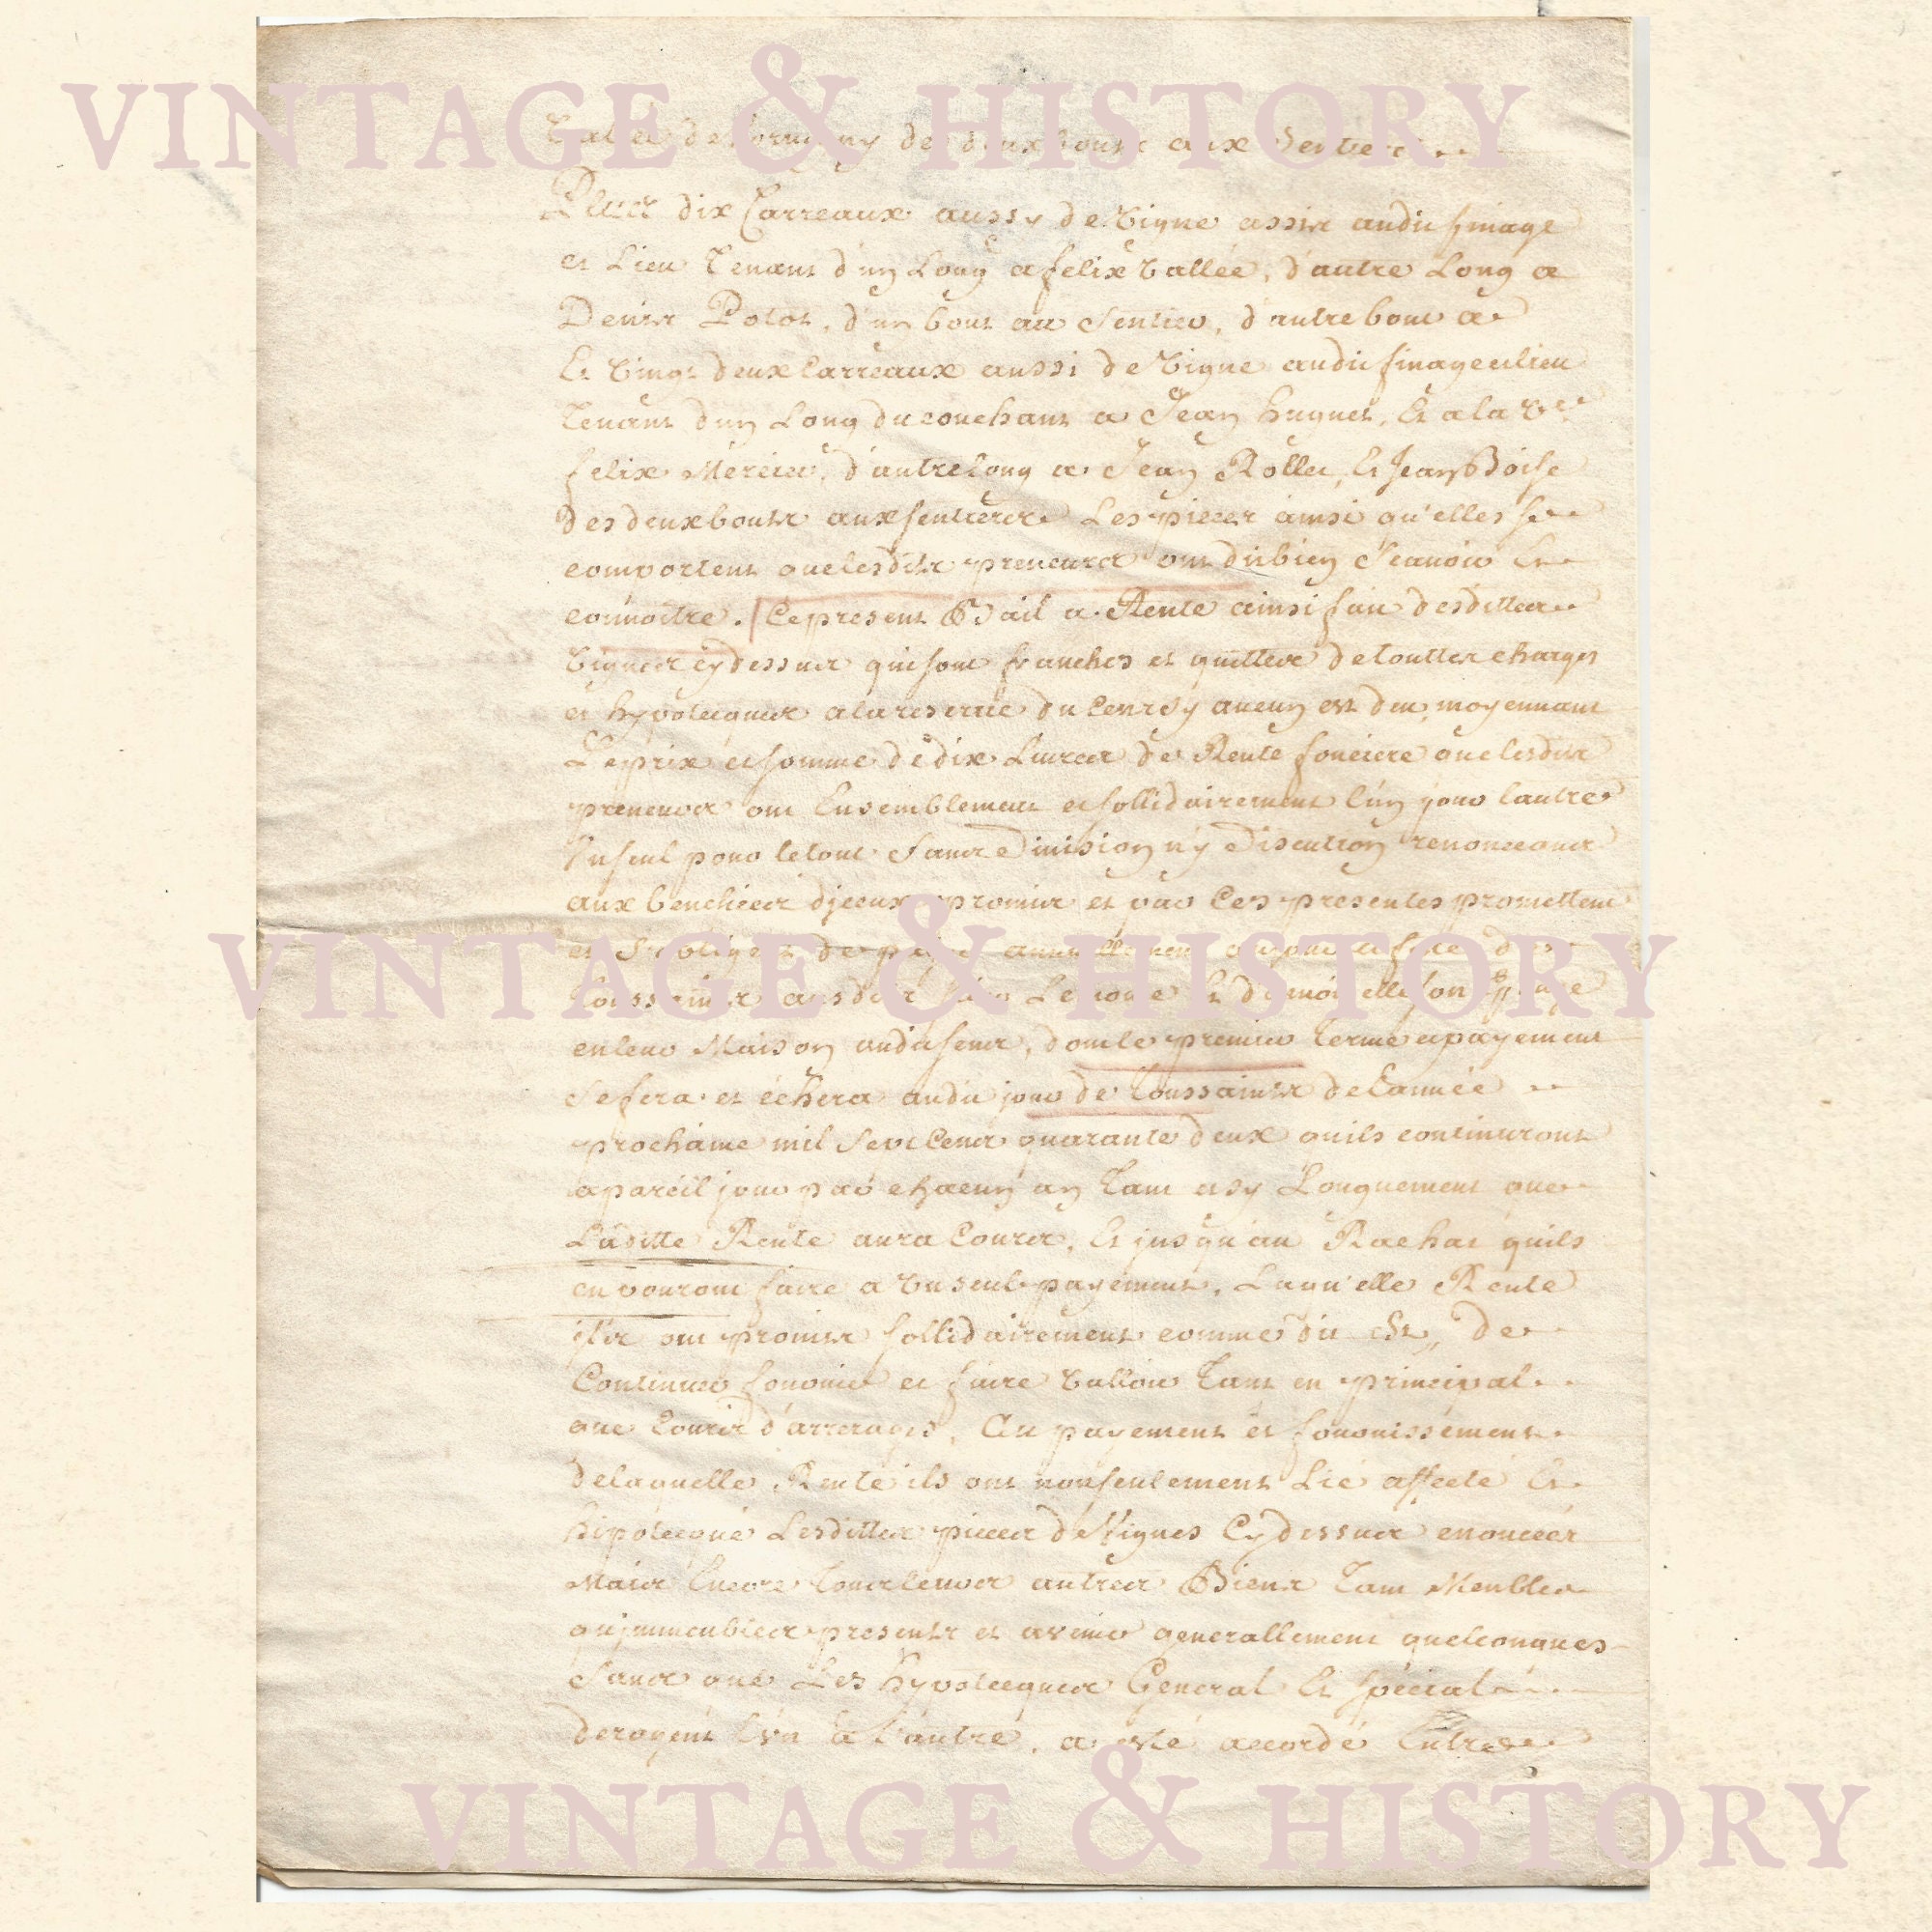 VINTAGE & HISTORY
des deux bouts aux Sentiers
Plus dix Carreaux aussy de Vigne assis audit finage
et Lieu Tenant d'un Long a felix Vallée, d'autre Long a
Denis Potot, d'un bout au Sentier, d'autre bout a
Et Vingt deux Carreaux aussi de Vigne audit finage et lieu
Tenant d'un Long du couchant a Jean huguet, Et a la Vve
felix Mercier, d'autre long a Jean Rollet, Et Jean
des deux bouts aux sentiers Les pieces ainsi qu'elles se
comportent que lesdits preneurs ont dit bien scavoir Et
connoitre. Ce present Bail a Rente ainsi fait desdittes
Vignes cy dessus qui sont franches et quittes de touttes charges
et hypotecques a la reserve du Cens sy aucun est deu, moyennant
Le prix et somme de dix Livres de Rente fonciere que lesdits
preneurs ont Ensemblement et sollidairement l'un pour l'autre
Un seul pour le tout sans Division ny Discution renonceans
aux benefices d'jceux promis et par Ces presentes promettent
et s'obligent de payer annuellement
VINTAGE & HISTORY
Toussaints ausdits Lemoine Et demoiselle son Epouse
en leur Maison audit dont le premier terme et payement
se fera et échera audit jour de Toussaints de l'année
prochaine mil Sept Cens quarante deux quils continuront
a pareil jour par chacun an Tant et sy Longuement que
Laditte Rente aura Cours, Et jusqu'au Rachat quils
en pouront faire a Un seul payement, Laqu'elle Rente
ils ont promis sollidairement comme dit Est, de
Continuer fournir et faire Valloir Tant en principal
que Cours d'arrerages, Au payement et fournissement
de laquelle Rente ils ont nonseulement Lié affecté Et
hipotecqué Lesdittes pieces de Vignes Cy dessus enoncées
Mais Encore tous leurs autres Biens Tant Meubles
qu'jmmeubles presents et avenir generallement quelconques
Sans que Les hypotecques General Et special
derogent l'un a l'autre, a esté accordé Entre
VINTAGE & HISTORY